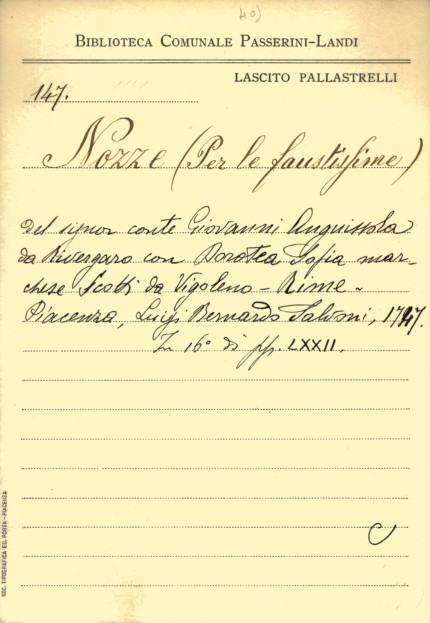 40)
BIBLIOTECA COMUNALE PASSERINI-LANDI
LASCITO PALLASTRELLI
147.
Nozze (Per le faustissime)
del signor conte Giovanni Anguissola
da Rivergaro con Dorotea Sofia mar-
chese Scotti da Vigoleno - Rime -
Piacenza, Luigi Bernardo Salvoni,
In 16° di pp. LXXII.
C
SOC. TIPOGRAFICA ED. PORTA - PIACENZA